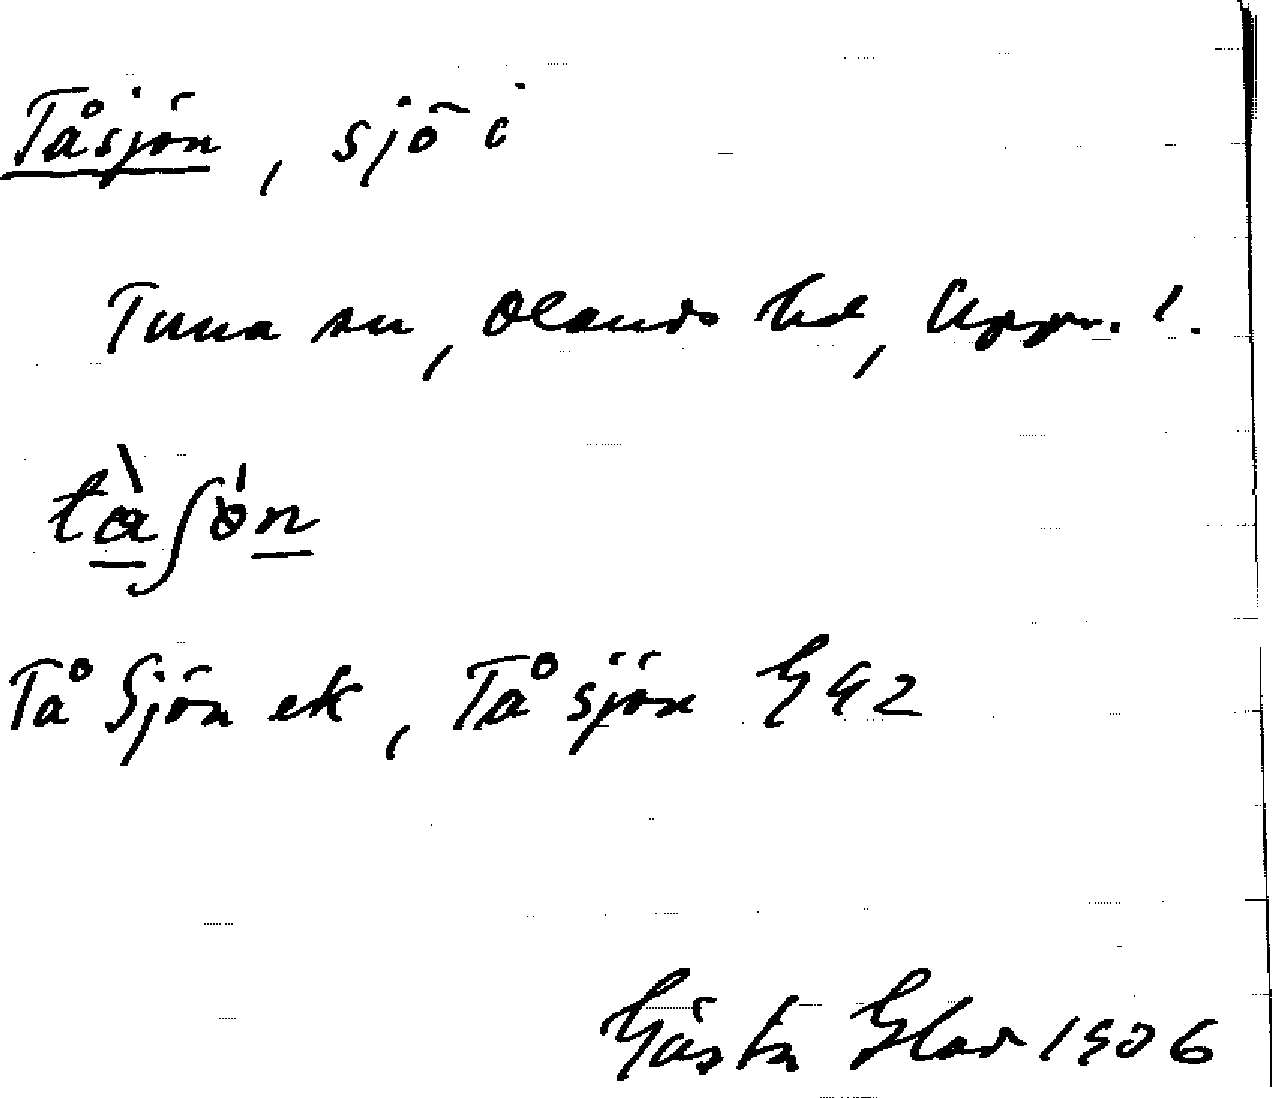 Tåsjön, sjö i
Tuna sn, Olands hd, Upps. l.
tɑ̀ʃo̍n
Tå Sjön ek, Tå sjön G 42
Gösta Glad 1906